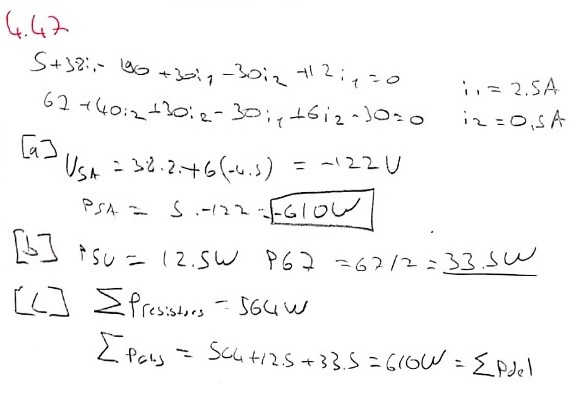 4.47
5+38i₁- 190 +30i₁ -30i₂ +12i₁ =0
i₁ = 2.5A
67 +40i₂ +30i₂ - 30i₁ +6i₂ -30=0
i₂ = 0,5A
[a] V5A = 38.2.+6(-4.5) = -122V
P5A = 5.-122 = -610W
[b] P5V = 12.5W P67 =67/2 = 33.5W
[C] ΣPresistors = 564W
ΣPabs = 564+12.5+33.5=610W = ΣPdel